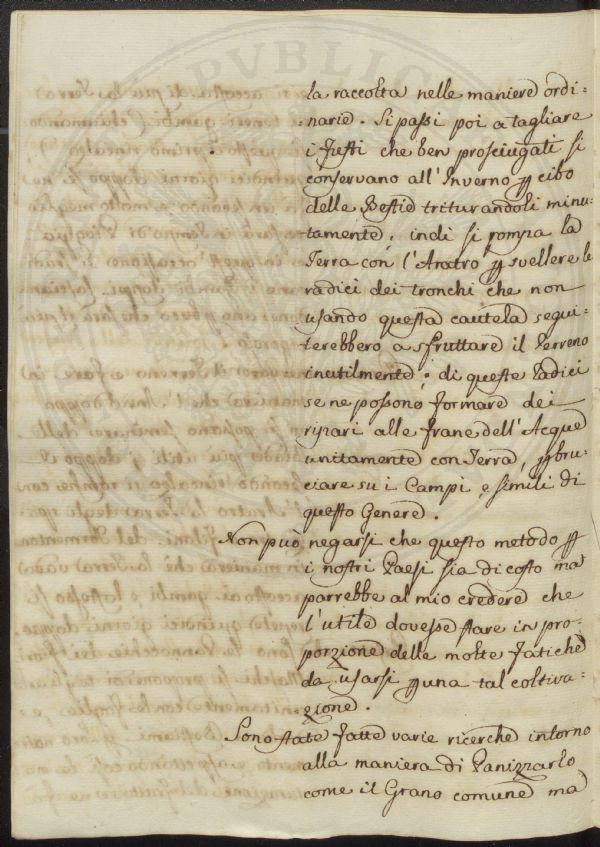 la raccolta nelle maniere ordi:
narie. Si passi poi a tagliare
i fusti che ben prosciugati si
conservano all'Inverno p cibo
delle Bestie triturandoli minu:
tamente, indi si rompa la
Terra con l'Aratro p svellere le
radici dei tronchi che non
usando questa cautela segui:
terebbero a sfruttare il Terreno
inutilmente; di queste Radici
se ne possono formare dei
ripari alle frane dell'Acque
unitamente con Terra, p bru:
ciare su i Campi, e simili di
questo Genere.
Non può negarsi che questo metodo p
i nostri Paesi sia di costo ma
parrebbe al mio credere che
l'utile dovesse stare in pro:
porzione delle molte fatiche
da usarsi p una tal coltiva:
zione.
Sono state fatte varie ricerche intorno
alla maniera di Panizzarlo
come il Grano comune ma
PVBLIC